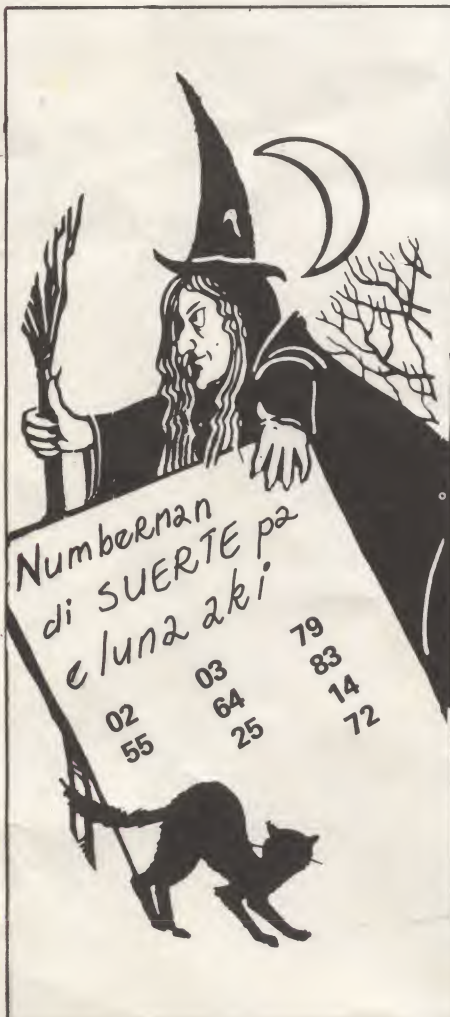 Numbernan
di SUERTE pa
e luna aki
02 03 79
55 64 83
25 14
72